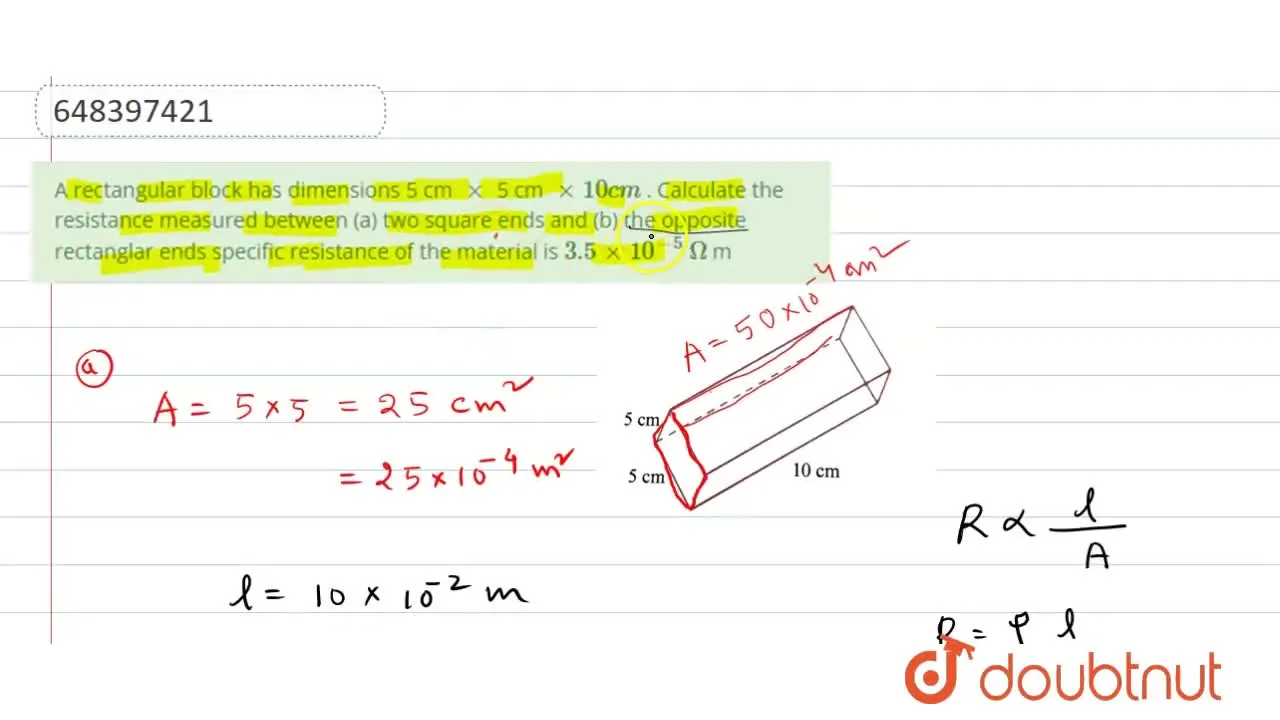 648397421
A rectangular block has dimensions 5 cm × 5 cm × 10cm . Calculate the
resistance measured between (a) two square ends and (b) the opposite
rectanglar ends specific resistance of the material is 3.5 × 10⁻⁵ Ω m
A = 50 × 10⁻⁴ cm²
a
A = 5 × 5 = 25 cm²
= 25 × 10⁻⁴ m²
5 cm
5 cm
10 cm
R ∝ l / A
l = 10 × 10⁻² m
R = ρ l
doubtnut